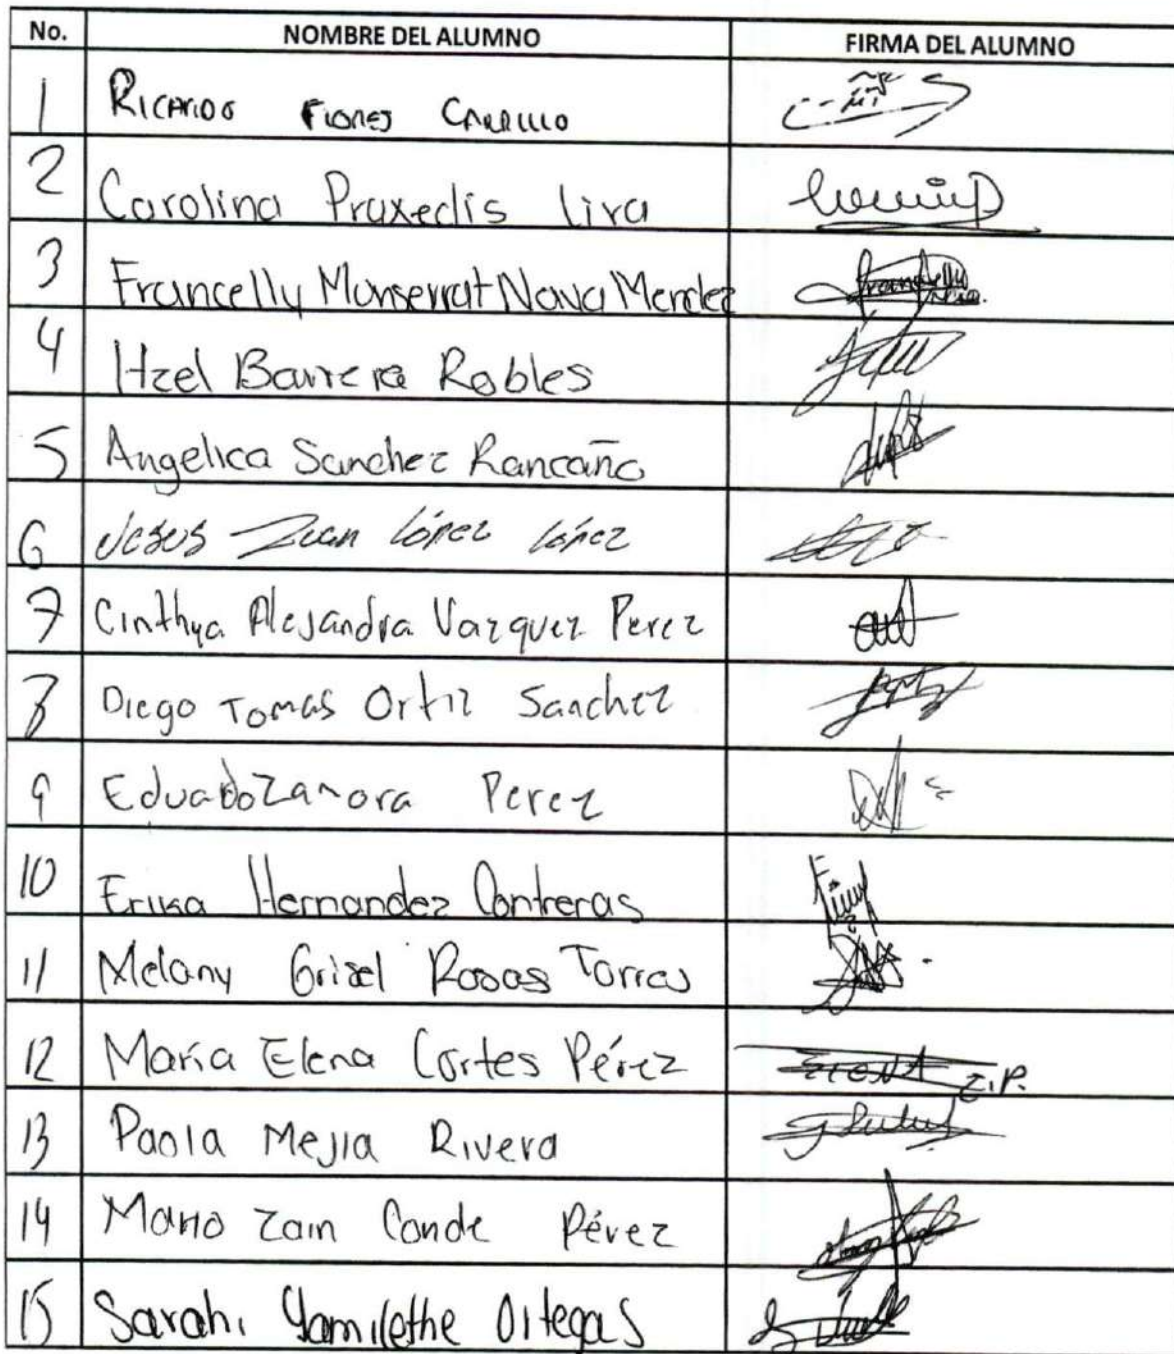 No. NOMBRE DEL ALUMNO FIRMA DEL ALUMNO
1 RICARDO FLORES CARRILLO
2 Carolina Praxedis Lira
3 Francelly Monserrat Nava Mendez
4 Itzel Barrera Robles
5 Angelica Sanchez Rancaño
6 Jesus Juan López López
7 Cinthya Alejandra Vazquez Perez
8 Diego Tomas Ortiz Sanchez
9 Eduardo Zamora Perez
10 Erika Hernandez Contreras
11 Melany Grisel Rosas Torres
12 María Elena Cortes Pérez
13 Paola Mejia Rivera
14 Mario Zain Conde Pérez
15 Sarahi Yamilethe Ortegas